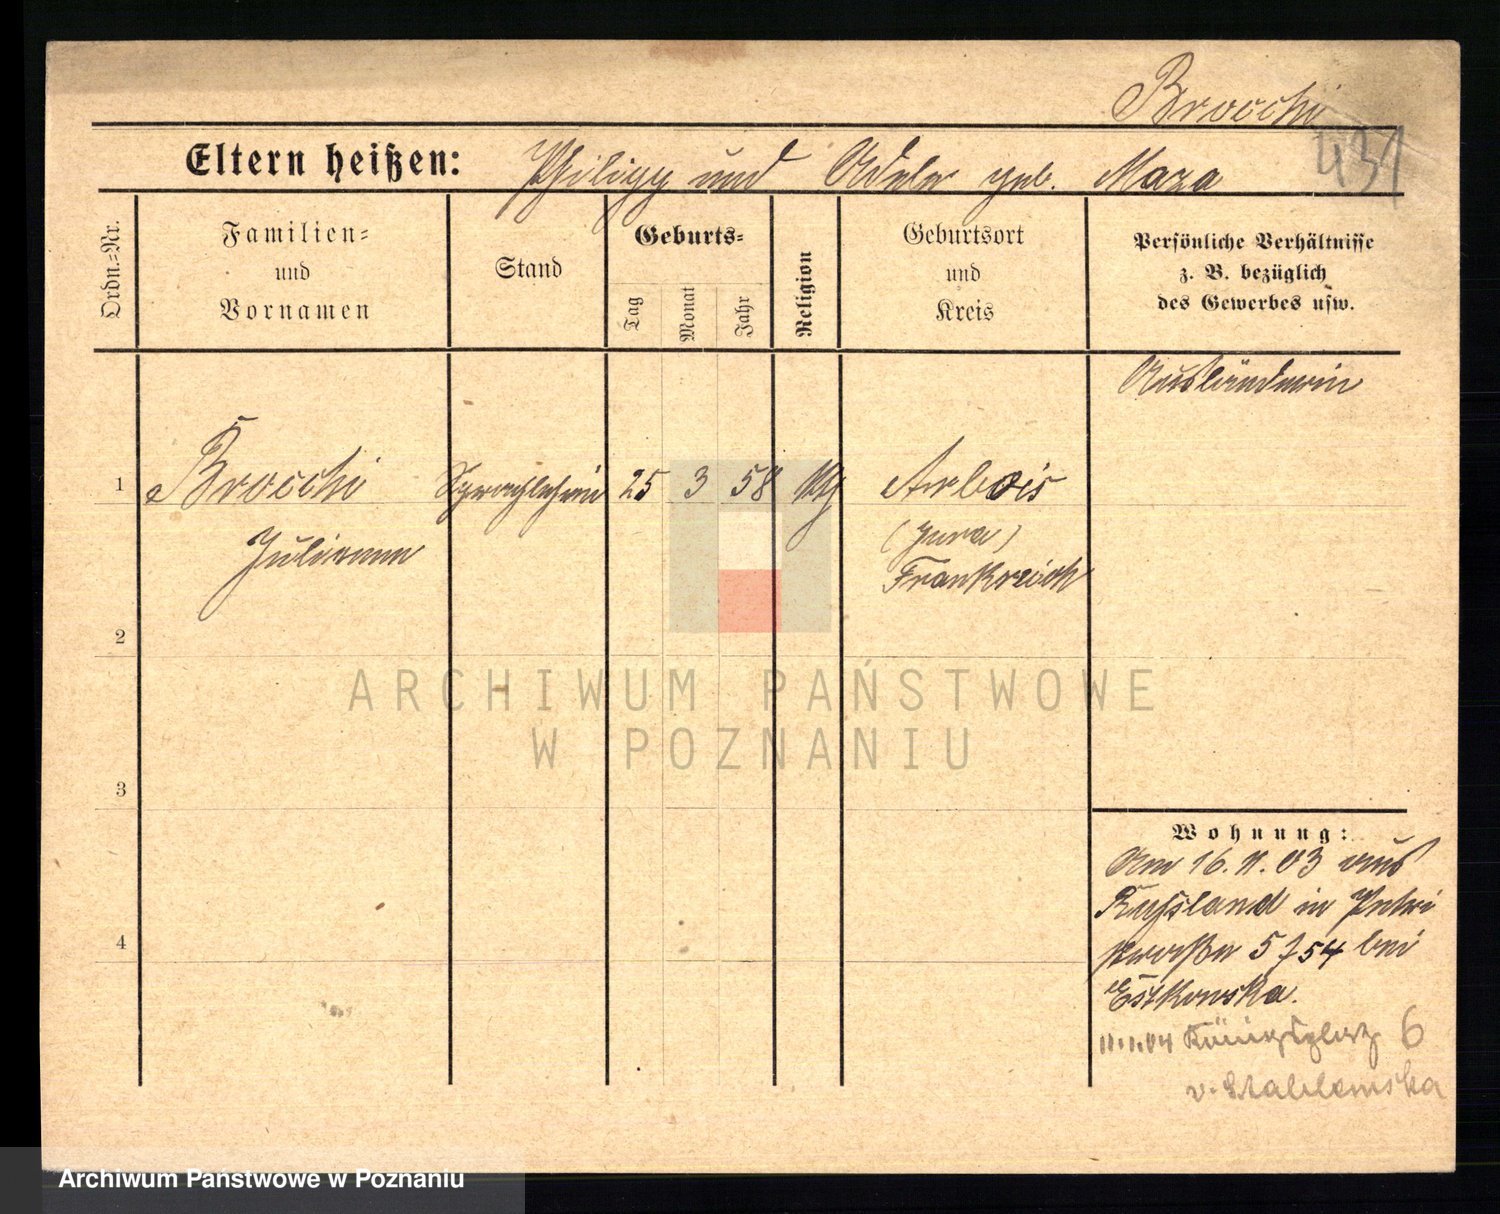 Brocchi
431
Eltern heißen: Philipp und Adele geb. Maza
Ordn.=Nr.
Familien=
und
Vornamen
Stand
Geburts=
Tag
Monat
Jahr
Religion
Geburtsort
und
Kreis
Persönliche Verhältnisse
z. B. bezüglich
des Gewerbes usw.
Ausländerin
1 Brocchi Sprachlehrerin 25 3 58 kth Arbois
Julienne (Jura)
Frankreich
2
3
4
ARCHIWUM PAŃSTWOWE
W POZNANIU
Wohnung:
Am 16. 11. 03 aus
Rußland in Petri
straße 5 bei
Estkowska.
11.1.04 Königsplatz 6
v. Stablewska
Archiwum Państwowe w Poznaniu